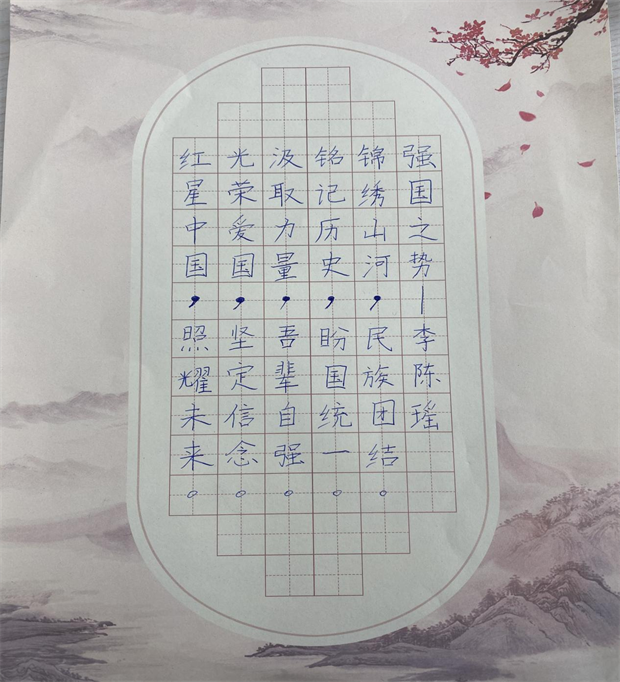 强国之势—李陈瑶
锦绣山河，民族团结。
铭记历史，盼国统一。
汲取力量，吾辈自强。
光荣爱国，坚定信念。
红星中国，照耀未来。